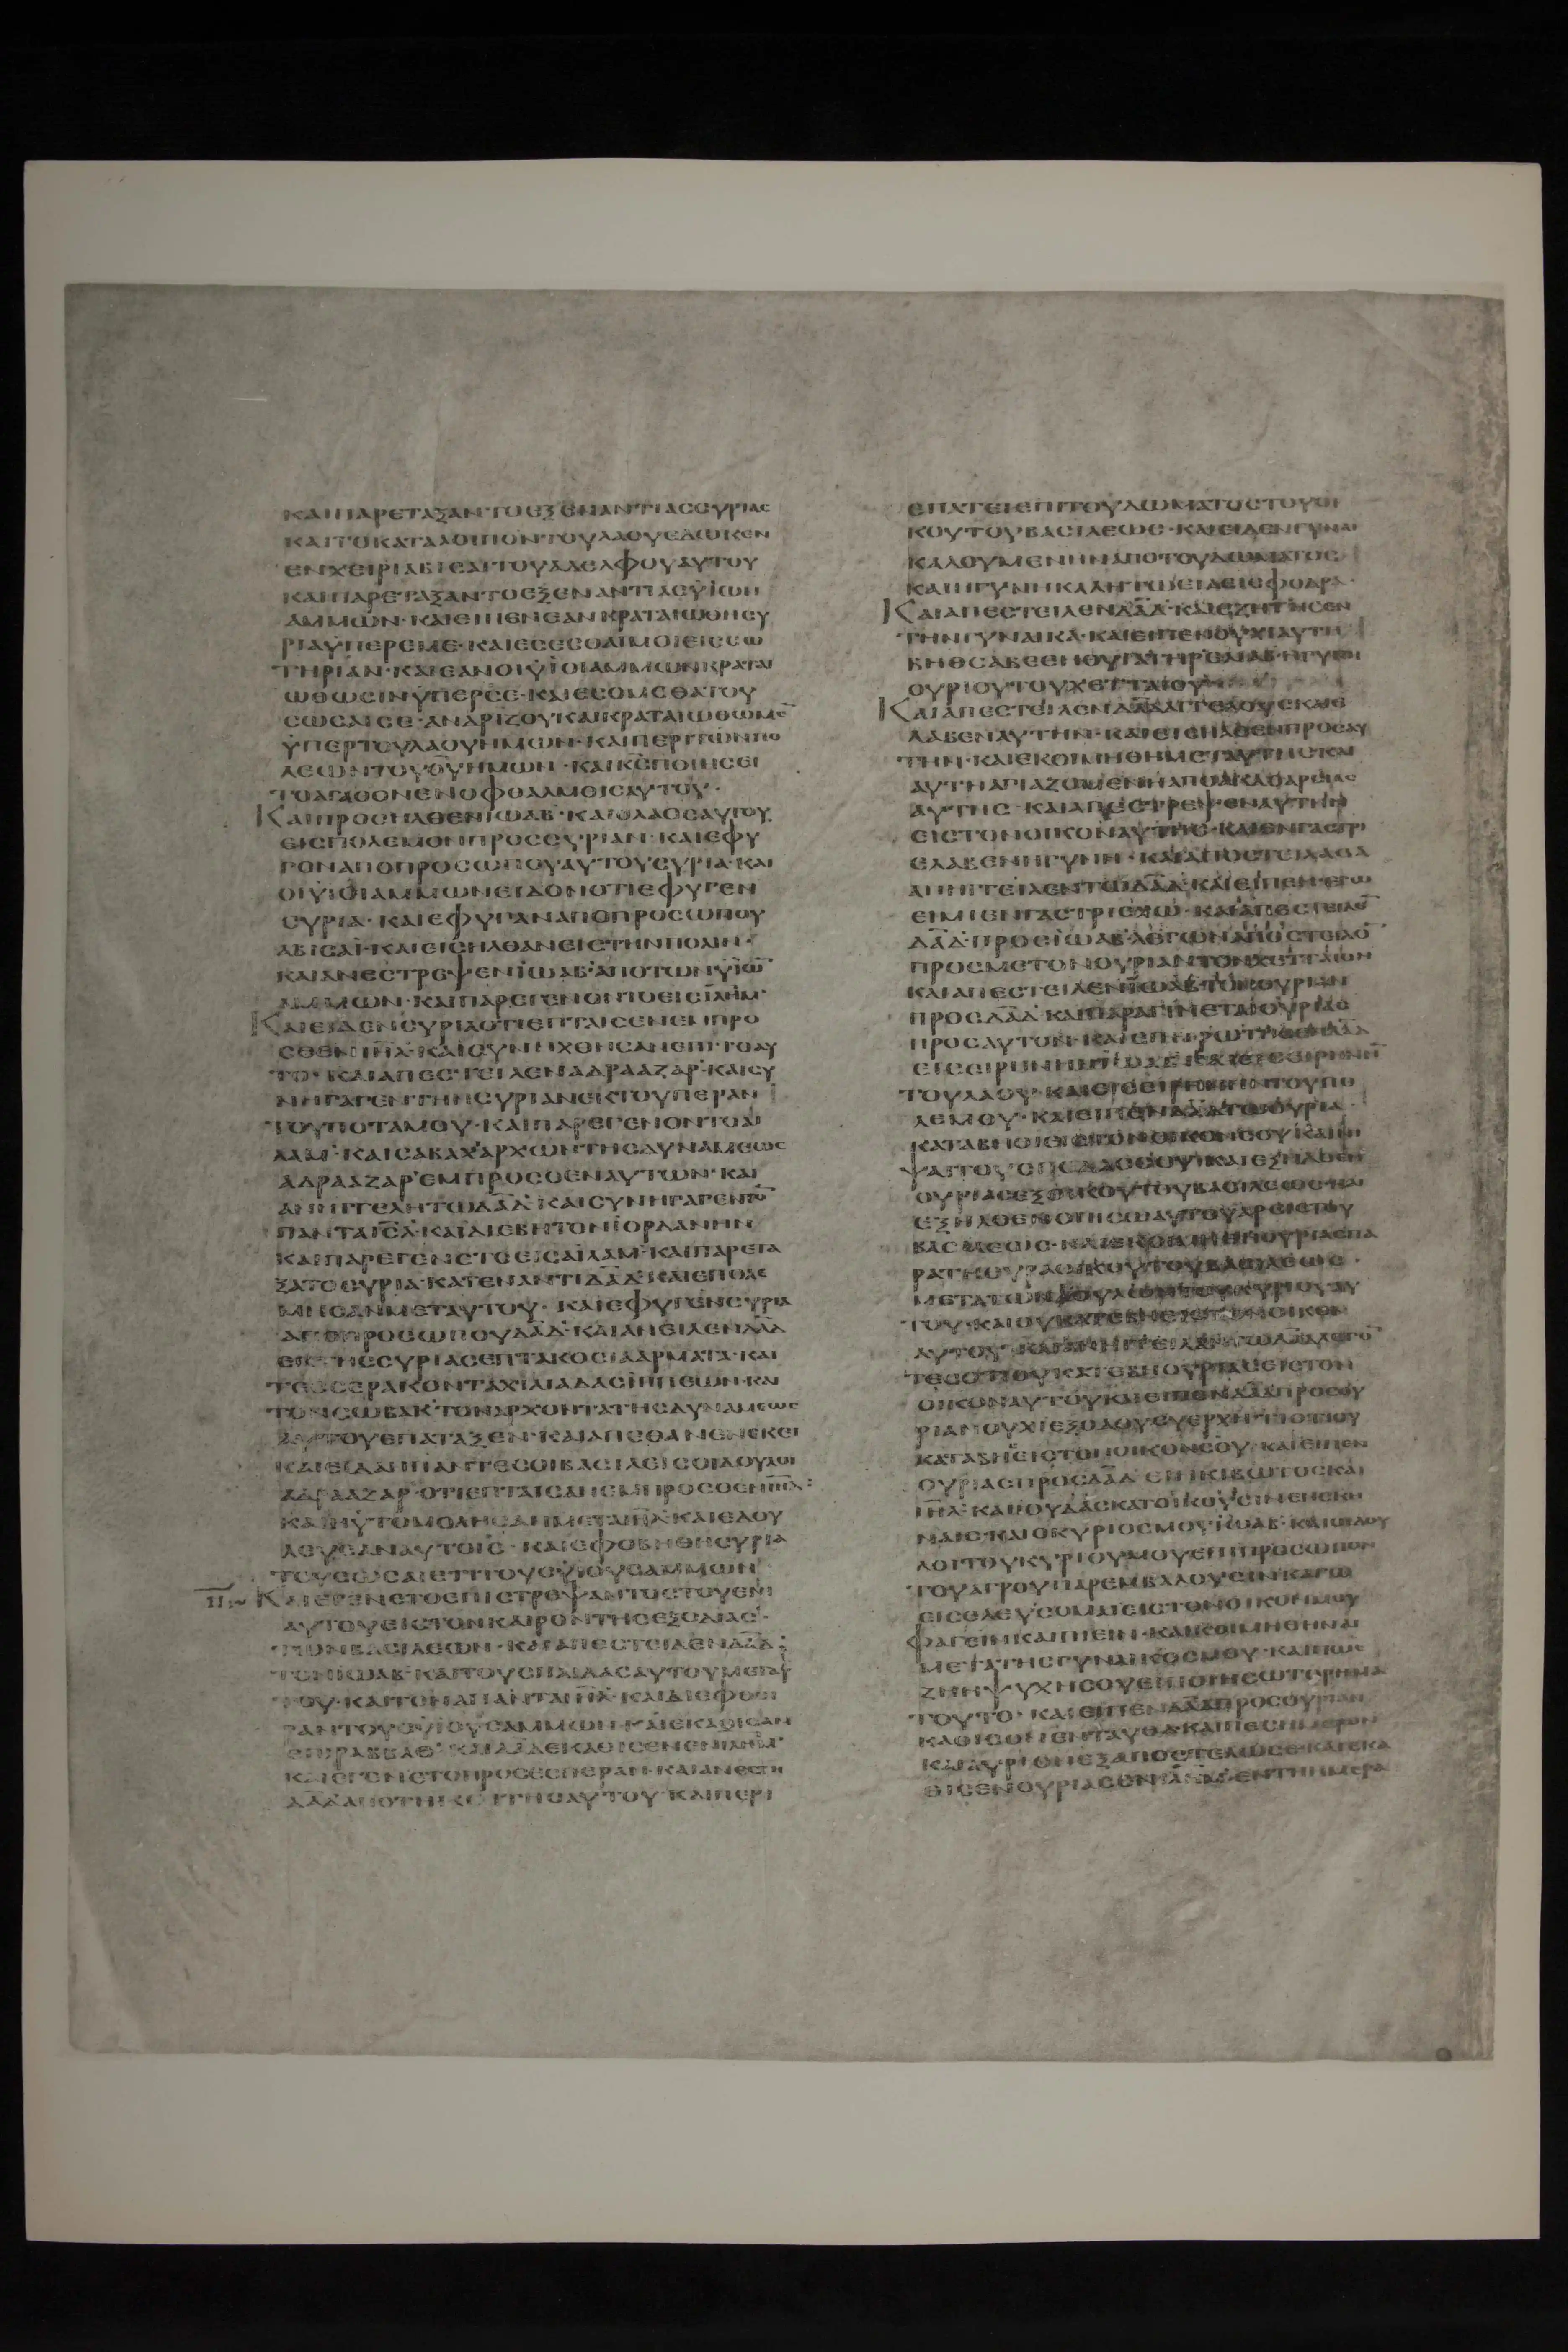 ΚΑΙΠΑΡΕΤΑΞΑΝΤΟΕΞΕΝΑΝΤΙΑССΥΡΙΑС
ΚΑΙΤΟΚΑΤΑΛΟΙΠΟΝΤΟΥΛΑΟΥΕΔΩΚΕΝ
ΕΝΧΕΙΡΙΑΒΙСΑΙΤΟΥΑΔΕΛΦΟΥΑΥΤΟΥ
ΚΑΙΠΑΡΕΤΑΞΑΝΤΟΕΞΕΝΑΝΤΙΑСΫΙΩΝ
ΑΜΜΩΝ·ΚΑΙΕΙΠΕΝΕΑΝΚΡΑΤΑΙΩΘΗСΥ
ΡΙΑΫΠΕΡΕΜΕ·ΚΑΙΕСΕСΘΑΙΜΟΙΕΙССΩ
ΤΗΡΙΑΝ·ΚΑΙΕΑΝΟΙΫΙΟΙΑΜΜΩΝΚΡΑΤΑΙ
ΩΘΩСΙΝΫΠΕΡСΕ·ΚΑΙΕСΟΜΕΘΑΤΟΥ
СΩСΑΙСΕ·ΑΝΔΡΙΖΟΥΚΑΙΚΡΑΤΑΙΩΘΩΜΕ̅
ΫΠΕΡΤΟΥΛΑΟΥΗΜΩΝ·ΚΑΙΠΕΡΙΤΩΝΠΟ
ΛΕΩΝΤΟΥΘ̅Υ̅ΗΜΩΝ·ΚΑΙΚ̅С̅ΠΟΙΗСΕΙ
ΤΟΑΓΑΘΟΝΕΝΟΦΘΑΛΜΟΙСΑΥΤΟΥ·
ΚΑΙΠΡΟСΗΛΘΕΝΪΩΑΒ·ΚΑΙΟΛΑΟСΑΥΤΟΥ
ΕΙСΠΟΛΕΜΟΝΠΡΟССΥΡΙΑΝ·ΚΑΙΕΦΥ
ΓΟΝΑΠΟΠΡΟСΩΠΟΥΑΥΤΟΥСΥΡΙΑ·ΚΑΙ
ΟΙΫΙΟΙΑΜΜΩΝΕΙΔΟΝΟΤΙΕΦΥΓΕΝ
СΥΡΙΑ·ΚΑΙΕΦΥΓΑΝΑΠΟΠΡΟСΩΠΟΥ
ΑΒΙСΑΪ·ΚΑΙΕΙСΗΛΘΑΝΕΙСΤΗΝΠΟΛΙΝ·
ΚΑΙΑΝΕСΤΡΕΨΕΝΪΩΑΒ·ΑΠΟΤΩΝΫΙΩ̅
ΑΜΜΩΝ·ΚΑΙΠΑΡΕΓΕΝΟΝΤΟΕΙСΙ̅Λ̅Η̅Μ̅·
ΚΑΙΕΙΔΕΝСΥΡΙΑΟΤΙΕΠΤΑΙСΕΝΕΜΠΡΟ
СΘΕΝΙ̅Η̅Λ̅·ΚΑΙСΥΝΗΧΘΗСΑΝΕΠΙΤΟΑΥ
ΤΟ·ΚΑΙΑΠΕСΤΕΙΛΕΝΑΔΡΑΑΖΑΡ·ΚΑΙСΥ
ΝΗΓΑΓΕΝΤΗΝСΥΡΙΑΝΕΚΤΟΥΠΕΡΑΝ
ΤΟΥΠΟΤΑΜΟΥ·ΚΑΙΠΑΡΕΓΕΝΟΝΤΟΑΙ
ΛΑΜ·ΚΑΙСΑΒΑΧΑΡΧΩΝΤΗСΔΥΝΑΜΕΩС
ΑΔΡΑΑΖΑΡΕΜΠΡΟСΘΕΝΑΥΤΩΝ·ΚΑΙ
ΑΝΗΓΓΕΛΗΤΩΔ̅Α̅Δ̅·ΚΑΙСΥΝΗΓΑΓΕΝΤΟ̅
ΠΑΝΤΑΙ̅Η̅Λ̅·ΚΑΙΔΙΕΒΗΤΟΝΪΟΡΔΑΝΗΝ
ΚΑΙΠΑΡΕΓΕΝΕΤΟΕΙСΑΙΛΑΜ·ΚΑΙΠΑΡΕΤΑ
ΞΑΤΟСΥΡΙΑΚΑΤΕΝΑΝΤΙΔ̅Α̅Δ̅·ΚΑΙΕΠΟΛΕ
ΜΗСΑΝΜΕΤΑΥΤΟΥ·ΚΑΙΕΦΥΓΕΝСΥΡΙΑ
ΑΠΟΠΡΟСΩΠΟΥΔ̅Α̅Δ̅·ΚΑΙΑΝΕΙΛΕΝΔ̅Α̅Δ̅
ΕΚΤΗССΥΡΙΑСΕΠΤΑΚΟСΙΑΑΡΜΑΤΑ·ΚΑΙ
ΤΕССΕΡΑΚΟΝΤΑΧΙΛΙΑΔΑСΪΠΠΕΩΝ·ΚΑΙ
ΤΟΝСΩΒΑΚ·ΤΟΝΑΡΧΟΝΤΑΤΗСΔΥΝΑΜΕΩС
ΑΥΤΟΥΕΠΑΤΑΞΕΝ·ΚΑΙΑΠΕΘΑΝΕΝΕΚΕΙ
ΚΑΙΕΙΔΑΝΠΑΝΤΕСΟΙΒΑСΙΛΕΙСΟΙΔΟΥΛΟΙ
ΑΔΡΑΑΖΑΡ·ΟΤΙΕΠΤΑΙСΑΝΕΜΠΡΟСΘΕΝΙ̅Η̅Λ̅:
ΚΑΙΗΥΤΟΜΟΛΗСΑΝΜΕΤΑΙ̅Η̅Λ̅·ΚΑΙΕΔΟΥ
ΛΕΥСΑΝΑΥΤΟΙС·ΚΑΙΕΦΟΒΗΘΗСΥΡΙΑ
ΤΟΥСΩСΑΙΕΤΙΤΟΥСΫΙΟΥСΑΜΜΩΝ
ΚΑΙΕΓΕΝΕΤΟΕΠΙСΤΡΕΨΑΝΤΟСΤΟΥΕΝΙ
ΑΥΤΟΥΕΙСΤΟΝΚΑΙΡΟΝΤΗСΕΞΟΔΙΑС·
ΤΩΝΒΑСΙΛΕΩΝ·ΚΑΙΑΠΕСΤΕΙΛΕΝΔ̅Α̅Δ̅·
ΤΟΝΪΩΑΒ·ΚΑΙΤΟΥСΠΑΙΔΑСΑΥΤΟΥΜΕΤΑΥ
ΤΟΥ·ΚΑΙΤΟΝΑΠΑΝΤΑΙ̅Η̅Λ̅·ΚΑΙΔΙΕΦΘΕΙ
ΡΑΝΤΟΥСΫΙΟΥСΑΜΜΩΝ·ΚΑΙΕΚΑΘΙСΑΝ
ΕΠΙΡΑΒΒΑΘ·ΚΑΙΔ̅Α̅Δ̅ΕΚΑΘΙСΕΝΕΝΙ̅Λ̅Η̅Μ̅·
ΚΑΙΕΓΕΝΕΤΟΠΡΟСΕСΠΕΡΑΝ·ΚΑΙΑΝΕСΤΗ
Δ̅Α̅Δ̅ΑΠΟΤΗСΚΟΙΤΗСΑΥΤΟΥ·ΚΑΙΠΕΡΙ
ΕΠΑΤΕΙΕΠΙΤΟΥΔΩΜΑΤΟСΤΟΥΟΙ
ΚΟΥΤΟΥΒΑСΙΛΕΩС·ΚΑΙΕΙΔΕΝΓΥΝΑΙ
ΚΑΛΟΥΜΕΝΗΝΑΠΟΤΟΥΔΩΜΑΤΟС·
ΚΑΙΗΓΥΝΗΚΑΛΗΤΩΕΙΔΕΙСΦΟΔΡΑ·
ΚΑΙΑΠΕСΤΕΙΛΕΝΔ̅Α̅Δ̅·ΚΑΙΕΖΗΤΗСΕΝ
ΤΗΝΓΥΝΑΙΚΑ·ΚΑΙΕΙΠΕΝΟΥΧΙΑΥΤΗ
ΒΗΘСΑΒΕΕΗΘΥΓΑΤΗΡΕΛΙΑΒ·ΗΓΥΝΗ
ΟΥΡΙΟΥΤΟΥΧΕΤΤΑΙΟΥ
ΚΑΙΑΠΕСΤΕΙΛΕΝΔ̅Α̅Δ̅ΑΓΓΕΛΟΥСΚΑΙΕ
ΛΑΒΕΝΑΥΤΗΝ·ΚΑΙΕΙСΗΛΘΕΝΠΡΟСΑΥ
ΤΗΝ·ΚΑΙΕΚΟΙΜΗΘΗΜΕΤΑΥΤΗС·ΚΑΙ
ΑΥΤΗΑΓΙΑΖΟΜΕΝΗΑΠΟΑΚΑΘΑΡСΙΑС
ΑΥΤΗС·ΚΑΙΑΠΕСΤΡΕΨΕΝΑΥΤΗΝ
ΕΙСΤΟΝΟΙΚΟΝΑΥΤΗС·ΚΑΙΕΝΓΑСΤΡΙ
ΕΛΑΒΕΝΗΓΥΝΗ·ΚΑΙΑΠΟСΤΕΙΛΑСΑ
ΑΠΗΓΓΕΙΛΕΝΤΩΔ̅Α̅Δ̅·ΚΑΙΕΙΠΕΝ·ΕΓΩ
ΕΙΜΙΕΝΓΑСΤΡΙΕΧΩ·ΚΑΙΑΠΕСΤΕΙΛΕ̅
Δ̅Α̅Δ̅·ΠΡΟСΪΩΑΒ·ΛΕΓΩΝΑΠΟСΤΕΙΛΟ̅
ΠΡΟСΜΕΤΟΝΟΥΡΙΑΝΤΟΝΧΕΤΤΑΙΟΝ
ΚΑΙΑΠΕСΤΕΙΛΕΝΪΩΑΒΤΟΝΟΥΡΙΑΝ
ΠΡΟСΔ̅Α̅Δ̅·ΚΑΙΠΑΡΑΓΙΝΕΤΑΙΟΥΡΙΑС
ΤΟΥΛΑΟΥ·ΚΑΙΕΙСΕΙΡΗΝΗΝΤΟΥΠΟ
ΛΕΜΟΥ·ΚΑΙΕΙΠΕΝΔ̅Α̅Δ̅ΤΩΟΥΡΙΑ
ΚΑΤΑΒΗΘΙΕΙСΤΟΝΟΙΚΟΝСΟΥΚΑΙΝΙ
ΟΥΡΙΑСΕΞΟΙΚΟΥΤΟΥΒΑСΙΛΕΩС·ΚΑΙ
ΕΞΗΛΘΕΝΟΠΙСΩΑΥΤΟΥΑΡСΙСΤΟΥ
ΒΑСΙΛΕΩС·ΚΑΙΕΚΟΙΜΗΘΗΟΥΡΙΑСΠΑ
ΟΙΚΟΝΑΥΤΟΥΚΑΙΕΙΠΕΝΔ̅Α̅Δ̅ΠΡΟСΟΥ
ΡΙΑΝΟΥΧΙΕΞΟΔΟΥСΥΕΡΧΗ·ΤΙΟΤΙΟΥ
ΚΑΤΑΒΗСΕΙСΤΟΝΟΙΚΟΝСΟΥ·ΚΑΙΕΙΠΕΝ
ΟΥΡΙΑСΠΡΟСΔ̅Α̅Δ̅·ΕΗΚΙΒΩΤΟСΚΑΙ
Ι̅Η̅Λ̅·ΚΑΙΪΟΥΔΑСΚΑΤΟΙΚΟΥСΙΝΕΝСΚΗ
ΝΑΙС·ΚΑΙΟΚΥΡΙΟСΜΟΥΪΩΑΒ·ΚΑΙΟΙΔΟΥ
ΛΟΙΤΟΥΚΥΡΙΟΥΜΟΥΕΠΙΠΡΟСΩΠΟΝ
ΤΟΥΑΓΡΟΥΠΑΡΕΜΒΑΛΟΥСΙΝ·ΚΑΓΩ
ΕΙСΕΛΕΥСΟΜΑΙΕΙСΤΟΝΟΙΚΟΝΜΟΥ
ΦΑΓΕΙΝΚΑΙΠΙΕΙΝ·ΚΑΙΚΟΙΜΗΘΗΝΑΙ
ΜΕΤΑΤΗСΓΥΝΑΙΚΟСΜΟΥ·ΚΑΙΠΩС
ΖΗΗΨΥΧΗСΟΥΕΙΠΟΙΗСΩΤΟΡΗΜΑ
ΤΟΥΤΟ·ΚΑΙΕΙΠΕΝΔ̅Α̅Δ̅ΠΡΟСΟΥΡΙΑΝ
ΚΑΘΙСΟΝΕΝΤΑΥΘΑΚΑΙΓΕСΗΜΕΡΟΝ
ΚΑΙΑΥΡΙΟΝΕΞΑΠΟСΤΕΛΩСΕ·ΚΑΙΕΚΑ
ΘΙСΕΝΟΥΡΙΑСΕΝΙ̅Λ̅Η̅Μ̅·ΕΝΤΗΗΜΕΡΑ